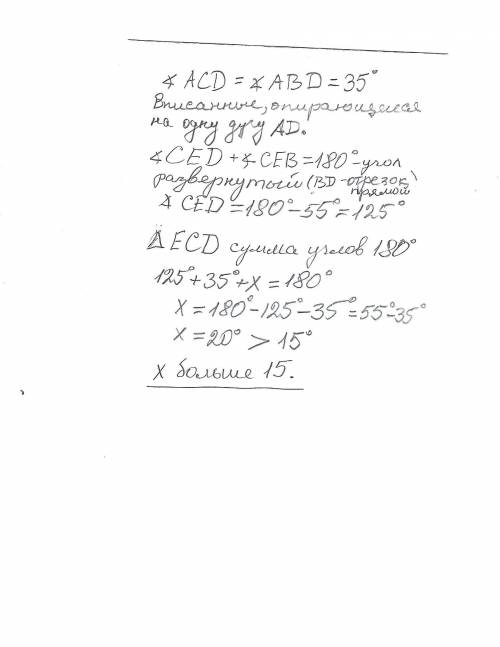 ∢ ACD = ∢ ABD = 35°
Вписанные, опирающиеся
на одну дугу AD.
∢CED + ∢CEB = 180° - угол
развернутый (BD - отрезок прямой)
∢ CED = 180° - 55° = 125°
∆ ECD сумма углов 180°
125° + 35° + x = 180°
x = 180° - 125° - 35° = 55° - 35°
x = 20° > 15°
x больше 15.